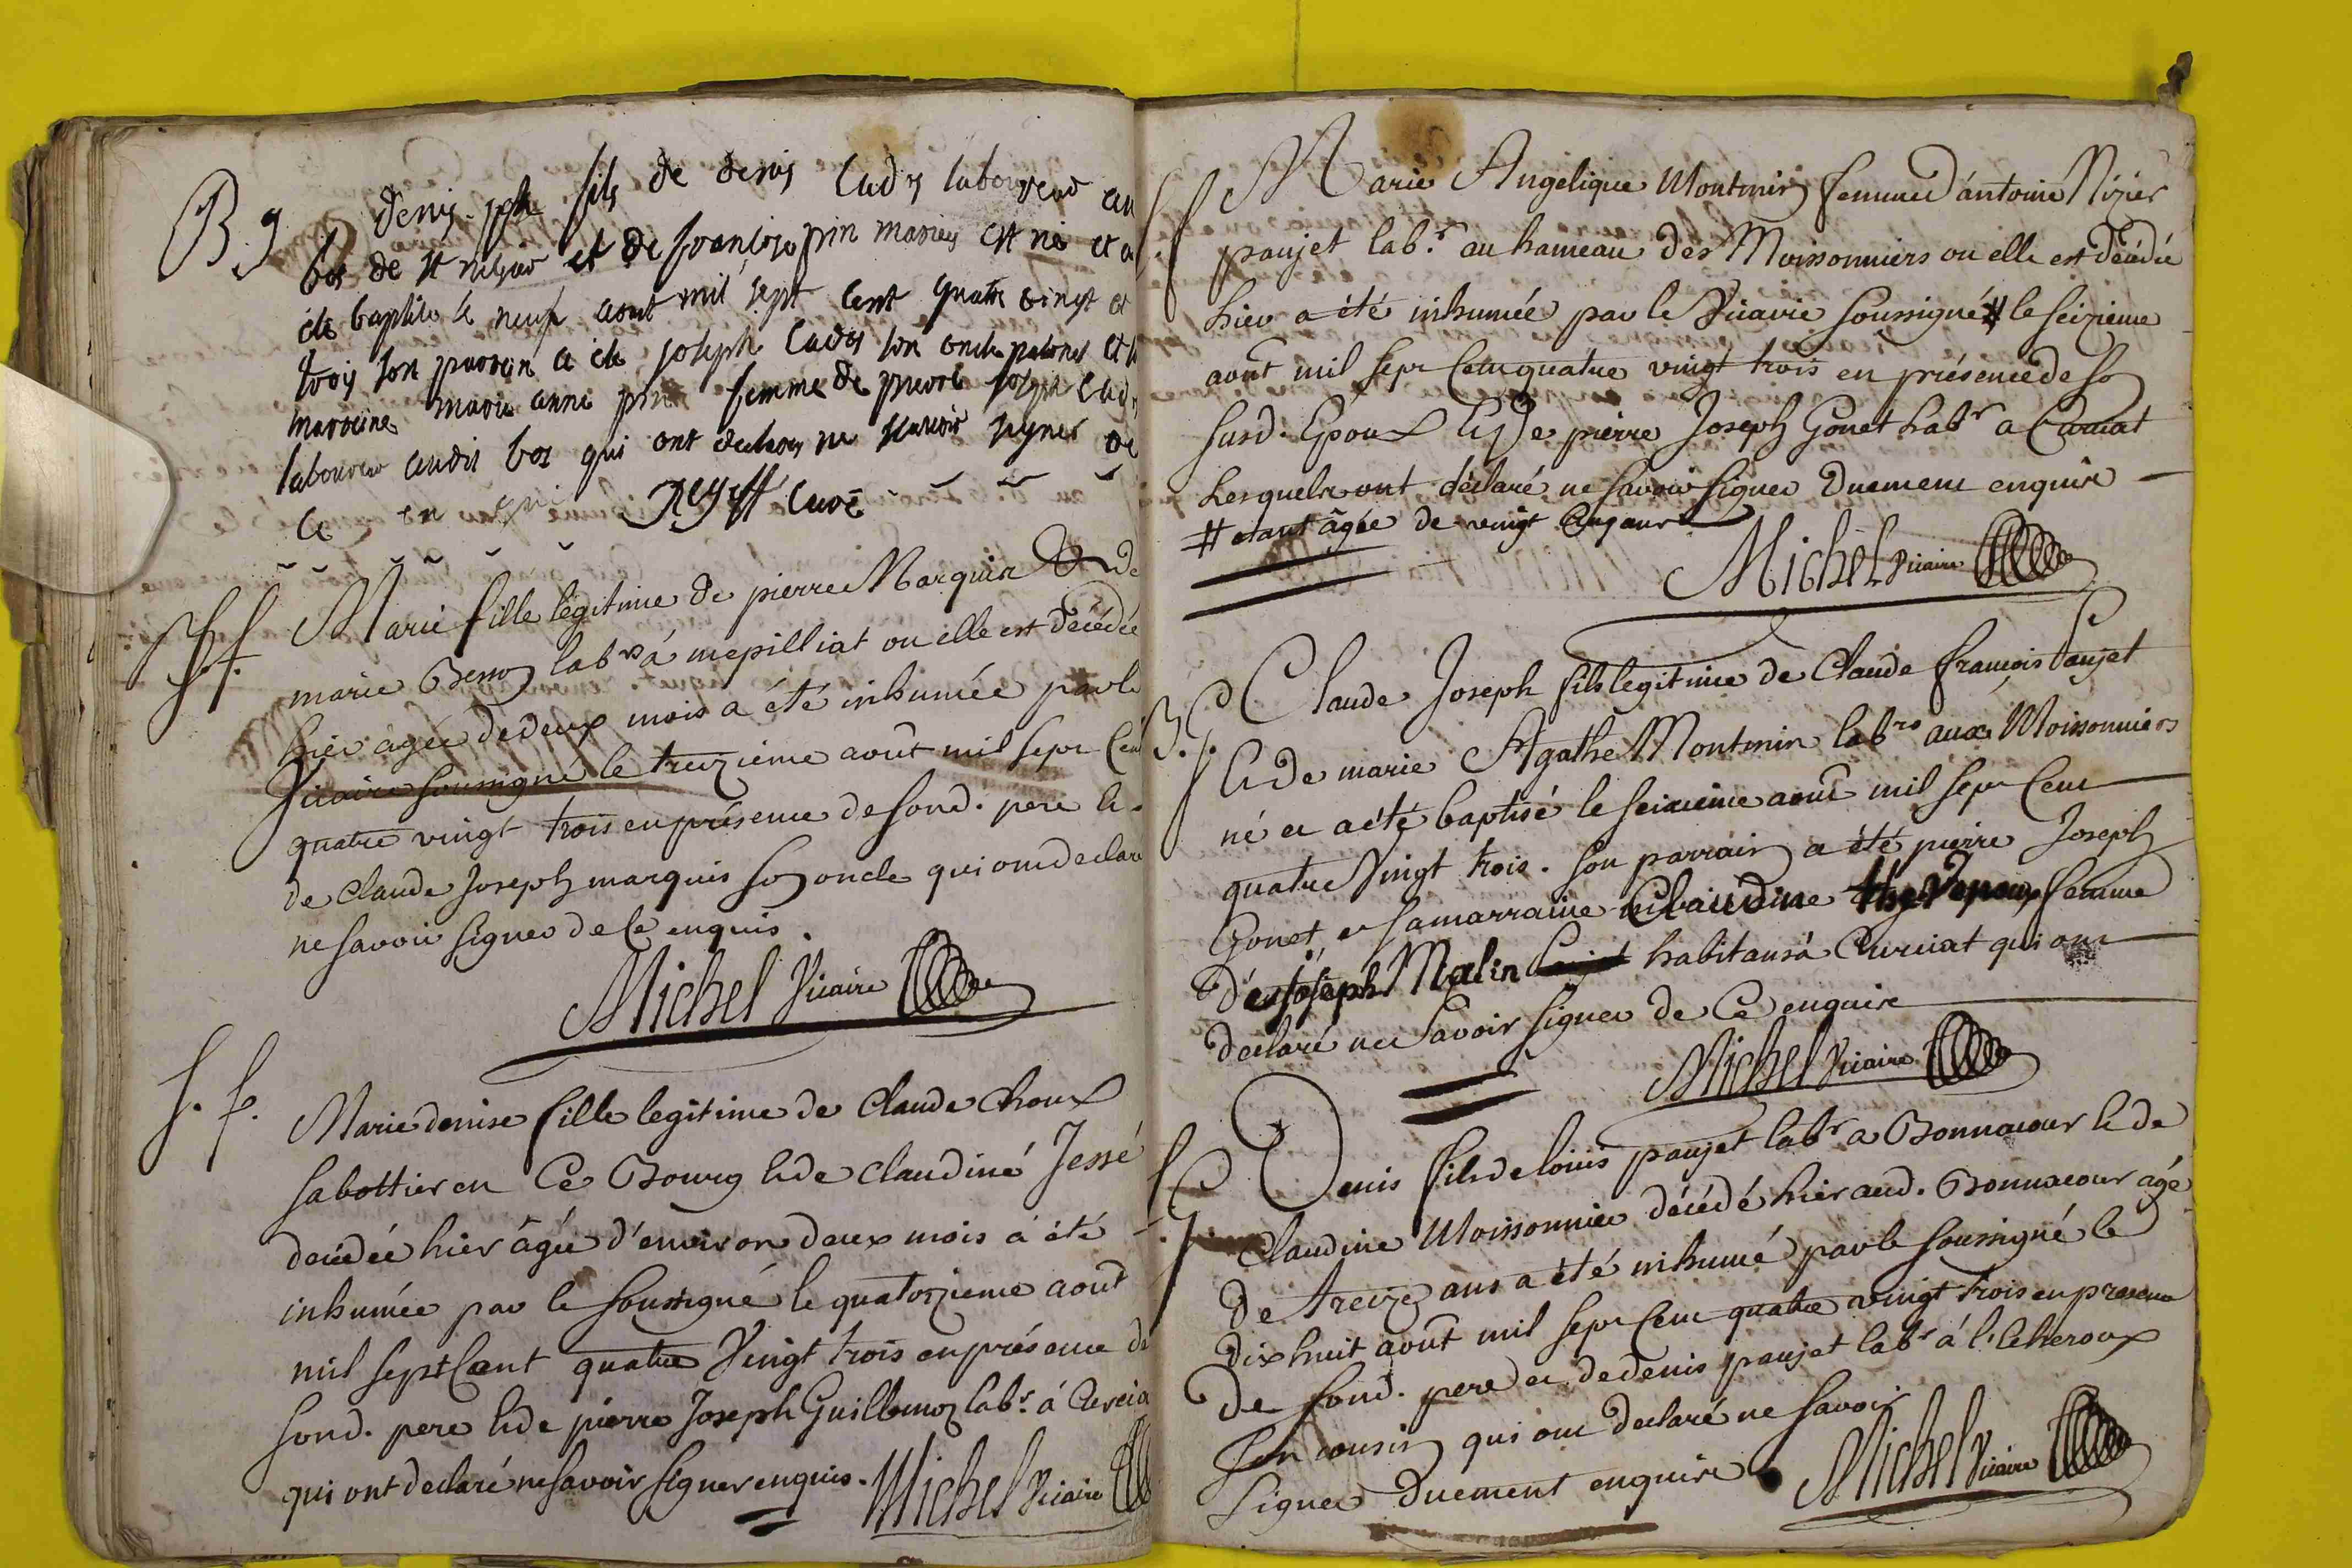 B. g.
denis jph fils de denis Cadis laboureur au
bos de st nizier et de francoise pin mariés est né et a
été baptisé le neuf aout mil sept cent quatre vingt et
trois son parrein a été joseph Cadis son oncle paternel et la
marreine marie anne pin femme de pierre joseph Cadis
laboureur audit bos qui ont declarés ne scavoir signer de
ce en qui Reyff curé
S. f. Marie fille légitime de pierre Marquis & de
marie Berro labrs à mepilliat ou elle est décédée
hier agée de deux mois a été inhumée par le
Vicaire soussigné le treizieme août mil sept Cent
quatre vingt trois en présence de sond. pere &
de Claude Joseph marquis son oncle qui ont declaré
ne savoir signer de Ce enquis.
Michel Vicaire
S. f.
Marie denise fille legitime de Claude Choux
sabottier en Ce Bourg & de Claudine Jessé
décédée hier âgée d'environ deux mois a été
inhumée par le soussigné le quatorzieme aout
mil sept Cent quatre Vingt trois en présence de
sond. pere & de pierre Joseph Guillemoz labr. à Curcia
qui ont declaré ne savoir signer enquis. Michel Vicaire
S. f. Marie Angelique Montmin femme d'antoine Nizier
paujet labr. au hameau des Moissonniers ou elle est décédée
hier a été inhumée par le Vicaire soussigné # le seizieme
aout mil sept Cent quatre vingt trois en présence de so
susd. Epoux & De pierre Joseph Gonet labr a Curciat
Lesquels ont déclaré ne savoir signer Duement enquis
# etant âgée de vingt Cinq ans
Michel Vicaire
B. g. Claude Joseph fils legitime de Claude françois Paujet
& de marie Agathe Montmin labrs aux Moissonniers
né et a été baptisé le seizieme aout mil sept Cent
quatre Vingt trois. son parrain a été pierre Joseph
Gonet, et sa marraine Claudine thevenoux femme
d'et Joseph Malin habitans à Curciat qui ont
declaré ne savoir signer de Ce enquis
Michel Vicaire
S. g. Denis fils de louis paujet labr a Bonnacour & de
Claudine Moissonnier décédé hier aud. Bonnacour agé
de treize ans a été inhumé par le soussigné le
dix huit aout mil sept Cent quatre vingt trois en presence
de sond. pere et de denis paujet labr à l'Echeroux
son cousin qui ont declaré ne savoir
signer Duement enquis Michel Vicaire